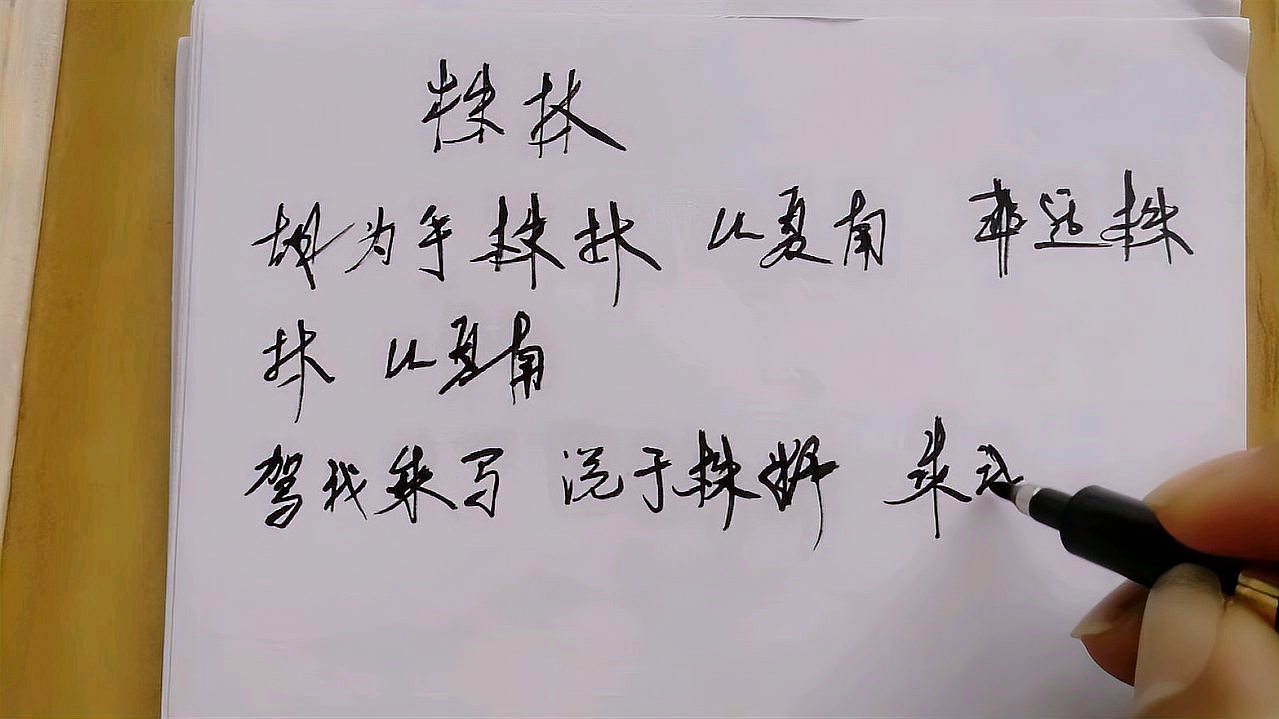 株林
胡为乎株林 从夏南 匪适株
林 从夏南
驾我乘马 说于株野 乘